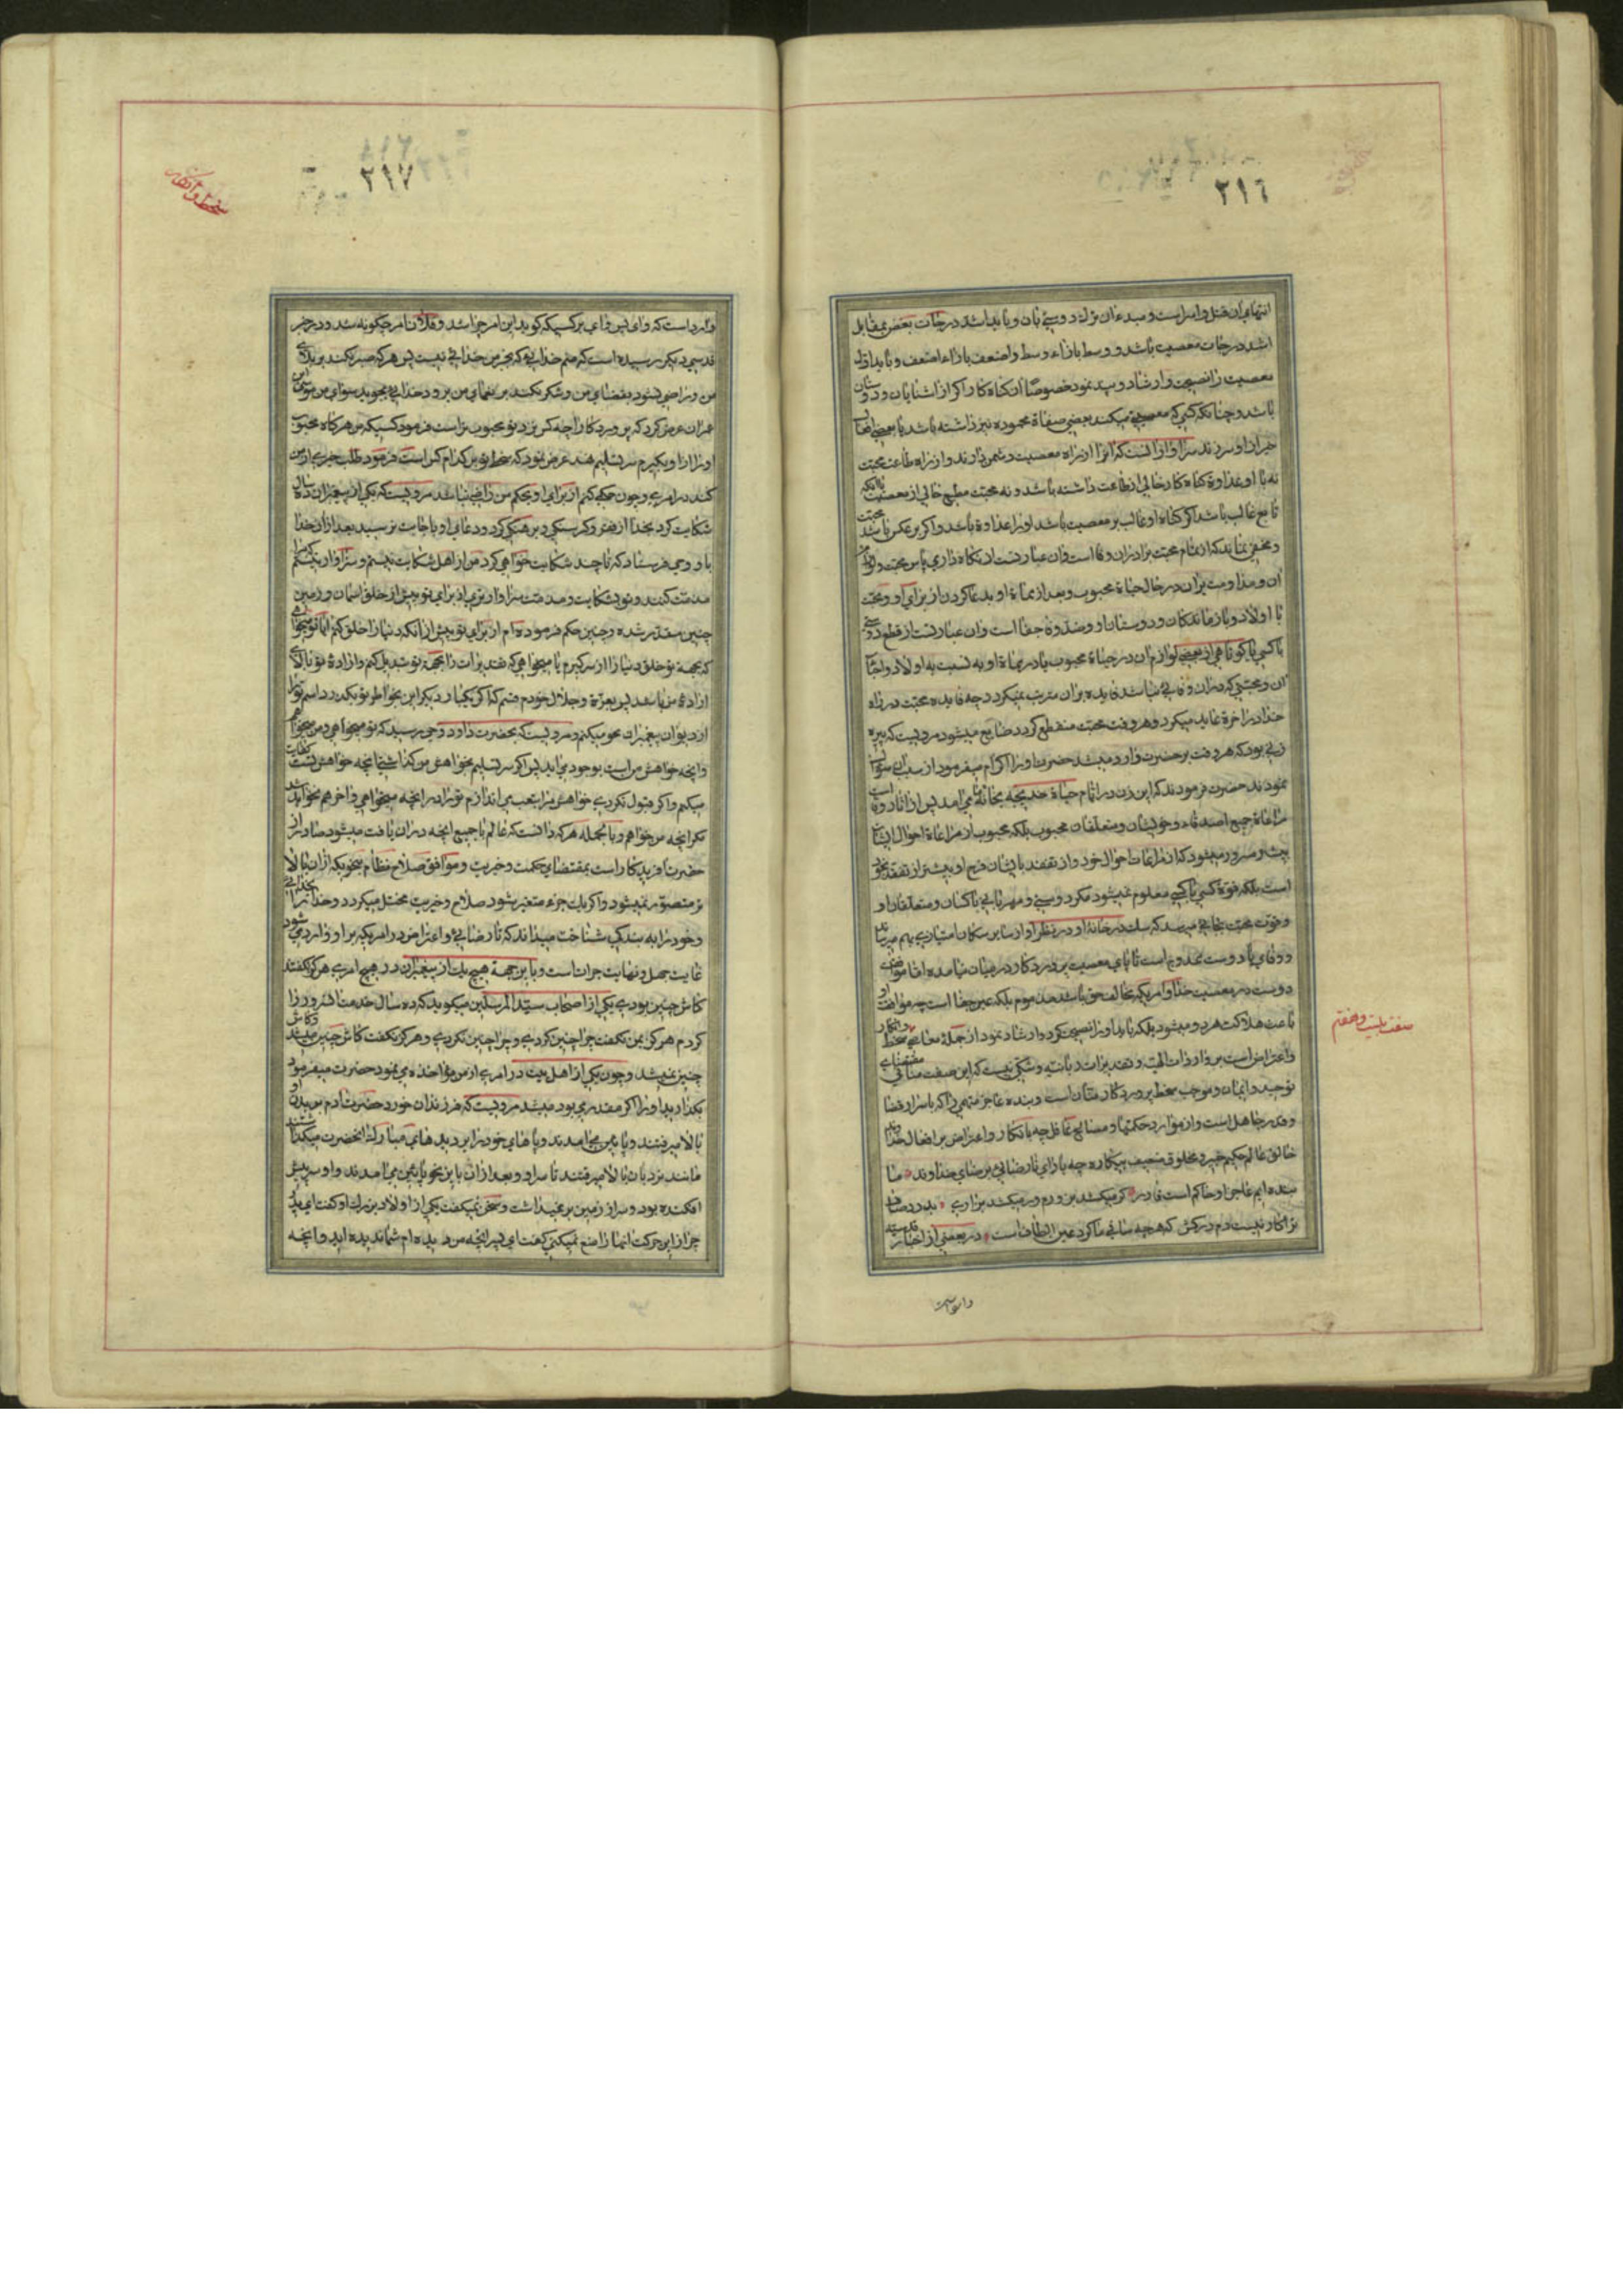 ٢١٦
انتهای ان قتل و امر است و مبدء ان ترك دوستی بان و باید اشد درجات بغض بمقابل
اشد درجات معصیت باشد و وسط بازاء وسط و اضعف بازاء اضعف و باید اول
معصیت را نصیحت و ارشاد و پند نمود خصوصا ان کناه کار اکر از اشنایان و دوستان
باشد و چنانکه کسی که معصیتی میکند بعضی صفاة محموده نیز داشته باشد یا بعضی افعال
خیر از او سر زند سزاوار انست که او را از راه معصیت دشمن دارند و از راه طاعت محبت
نه با او عداوة کناه کار خالی از طاعت داشته باشد و نه محبت مطیع خالی از معصیت بلکه
تابع غالب باشد اکر کناه او غالب بر معصیت باشد او را عداوة باشد و اکر بر عکس باشد محبت
و مخفی نماند که از تمام محبت برادران وفا است و ان عبارتست از نکاه داری پاس محبت و لوازم
ان و مداومت بران در حال حیاة محبوب و بعد از مماة او بدعا کردن از برای او و محبت
با اولاد و بازماندکان و دوستان او و ضد وفا جفا است و ان عبارتست از قطع دوستی
با کسی یا کوتاهی از بعضی لوازم ان در حیاة محبوب یا در مماة او به نسبت به اولاد و احباء
ان و محبتی که در ان وفائی نباشد فایده بران مترتب نمیکردد چه فایده محبت در راه
خدا در اخرة عاید میکردد و هر وقت محبت منقطع کردد ضایع میشود مرویست که پیره
زنی بود که هر وقت بر حضرت وارد میشد حضرت او را اکرام میفرمود از سبب ان سؤال
نمودند حضرت فرمودند که این زن در ایام حیاة خدیجه بخانه ما می امد پس از اثار وفا است
مراعاة جمیع اصدقاء و خویشان و متعلقان محبوب بلکه محبوب از مراعاة احوال ایشان
بیشتر مسرور میشود که از مراعات احوال خود و از تفقد بایشان فرح او بیشتر از تفقد بخود
است بلکه قوة کسی با کسی معلوم نمیشود مکر دوستی و مهربانی با کسان و متعلقان او
و قوت محبت بجائی میرسد که سك در خانه او در نظر او از سایر سکان امتیازی بهم میرساند
و وفای با دوست ممدوح است تا پای معصیت پروردکار در میان نیامده اما موافقت
دوست در معصیت خدا و امریکه مخالف حق باشد مذموم بلکه عین جفا است چه موافقت او
باعث هلاکت هر دو میشود بلکه باید او را نصیحت کرد و ارشاد نمود از جمله معاصی سخط و انکار
و اعتراض است بر واردات الهیه و تقدیرات ربانیه و شکی نیست که این صفت منافی مقتضای
توحید و ایمان و موجب سخط پروردکار منان است و بنده عاجز متهمی را که باسرار قضا
و قدر جاهل است و از موارد حکمتها و مصالح غافل چه بانکار و اعتراض بر افعال خداوند
خالق عالم حکیم خبیر و مخلوق ضعیف بیکاره چه یارای نارضائی برضای خداوند ما
بنده ایم عاجز او حاکم است قادر کر میکشد بزورم ور میکشد بزاری بدرد و صاف
ترا کار نیست دم درکش که هر چه ساقی ما کرد عین الطاف است در بعضی از اخبار قدسیه
صفت بیست و هفتم
وارد است
٢١٧
سخط و انکار
وارد است که وای پس وای بر کسیکه کوید این امر چرا شد و فلان امر چکونه شد و در خبر
قدسی دیکر رسیده است که منم خدایی که بجز من خدائی نیست پس هر که صبر نکند بر بلای
من و راضی نشود بقضای من و شکر نکند بر نعمای من برود خدایی بجوید سوای من موسی ابن
عمران عرض کرد که پروردکارا چه کس نزد تو محبوب تر است فرمود کسیکه من هر کاه محبوب
او را از او بکیرم سر تسلیم نهد عرض نمود که سخط تو بر کدام کس است فرمود طلب خیری از من
کند در امری و چون حکمی کنم از برای او بحکم من راضی نباشد مرویست که یکی از پیغمبران ده سال
شکایت کرد بخدا از فقر و کرسنکی و برهنکی کرد و دعای او باجابت نرسید بعد از ان خدا
باو وحی فرستاد که تا چند شکایت خواهی کرد من از اهل شکایت نیستم و سزاوار نیستم که مرا
مذمت کنند و تو بشکایت و مذمت سزاوارتری از برای تو پیش از خلق اسمان و زمین
چنین مقدر شده و چنین حکم فرموده ام از برای تو پیش از انکه دنیا را خلق کنم ایا تو میخواهی
که بجهة تو خلق دنیا را از سر کیرم یا میخواهی که تقدیرات را بجهة تو تبدیل کنم و ارادۀ تو بالای
ارادۀ من باشد پس بعزة و جلال خودم قسم که اکر یکبار دیکر این بخواطر تو بکذرد اسم تو را
از دیوان پیغمبران محو میکنم و مرویست که بحضرت داود وحی رسید که تو میخواهی و من میخواهم
و انچه خواهش من است بوجود می اید پس اکر سر تسلیم بخواهش من کذاشتی انچه خواهش تست کفایت
میکنم و اکر قبول نکردی خواهش مرا بتعب می اندازم تو را در انچه میخواهی و اخر هم نخواهد شد
مکر انچه من خواهم و بالجمله هر که دانست که عالم با جمیع انچه در ان یافت میشود صادر از
حضرت افریدکار است بمقتضای حکمت و خیریت و موافق صلاح نظام بنحویکه از ان بالا
تر متصور نمیشود و اکر یك جزء متغیر شود صلاح و خیریت مختل میکردد و خدا را بخدائی
و خود را به بندکی شناخت میداند که نارضائی و اعتراض در امریکه بر او وارد می شود
غایت جهل و نهایت جرات است و باین جهة هیچ یك از پیغمبران در هیچ امری هرکز نکفتند
کاش چنین بودی یکی از اصحاب سید المرسلین میکوید که ده سال خدمت ان سرور را
کردم هرکز بمن نکفت چرا چنین کردی و چرا چنین نکردی و هرکز نکفت کاش چنین میشد و کاش
چنین نمیشد و چون یکی از اهل بیت در امری از من مؤاخذه می نمود حضرت میفرمود
بکذارید او را اکر مقدر می بود میشد مرویست که فرزندان خورد حضرت ادم بر بدن او
بالا میرفتند و پایین می امدند و پاهای خود را بر دندهای مبارك انحضرت میکذاشتند
مانند نردبان بالا میرفتند تا سر او و بعد از ان باین نحو پایین می امدند و او سر پیش
افکنده بود و سر از زمین بر نمیداشت و سخن نمیکفت یکی از اولاد بزرك او کفت ای پدر
چرا از این حرکت انها را منع نمیکنی کفت ای پسر انچه من دیده ام شما ندیده اید و انچه